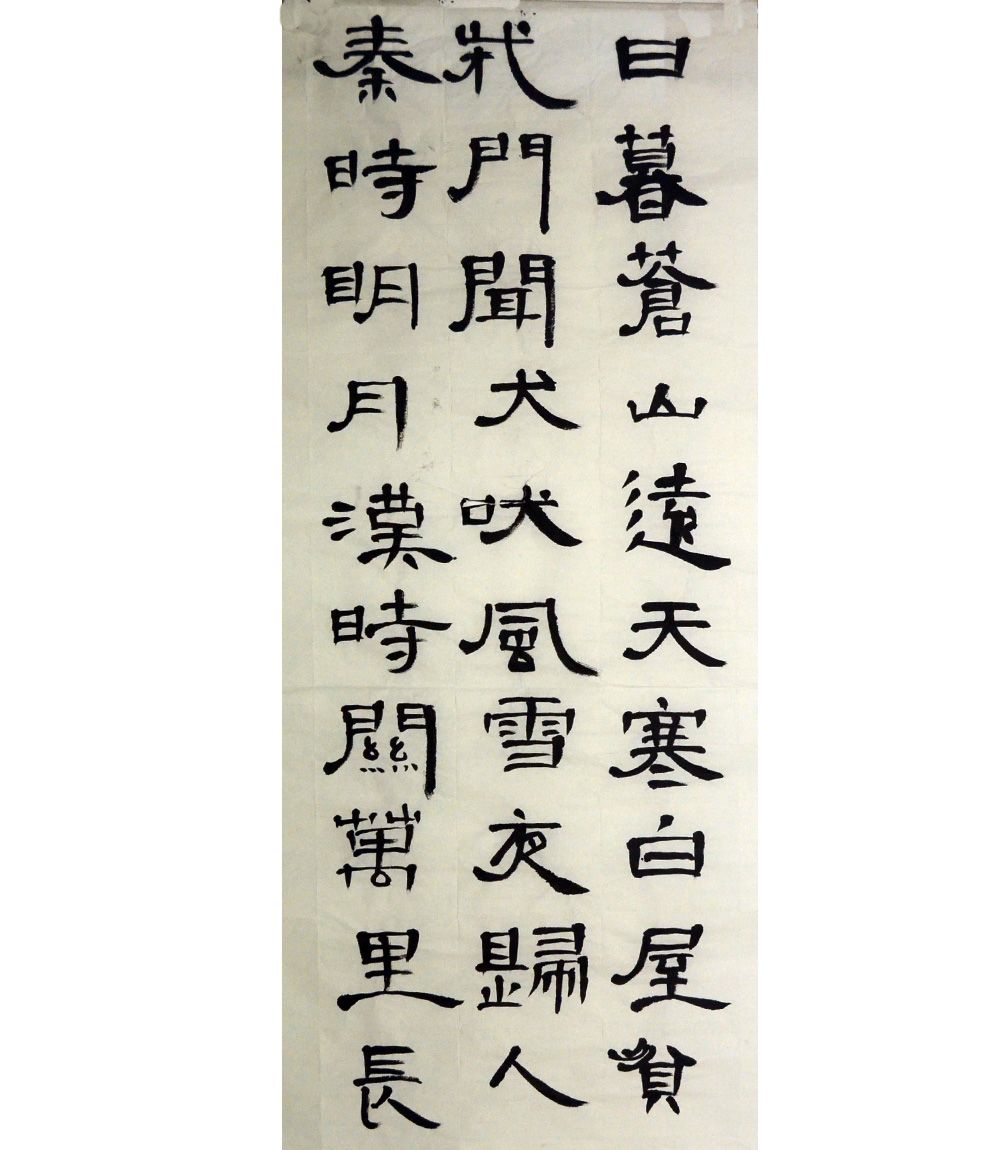 日暮蒼山遠天寒白屋貧
柴門聞犬吠風雪夜歸人
秦時明月漢時關萬里長